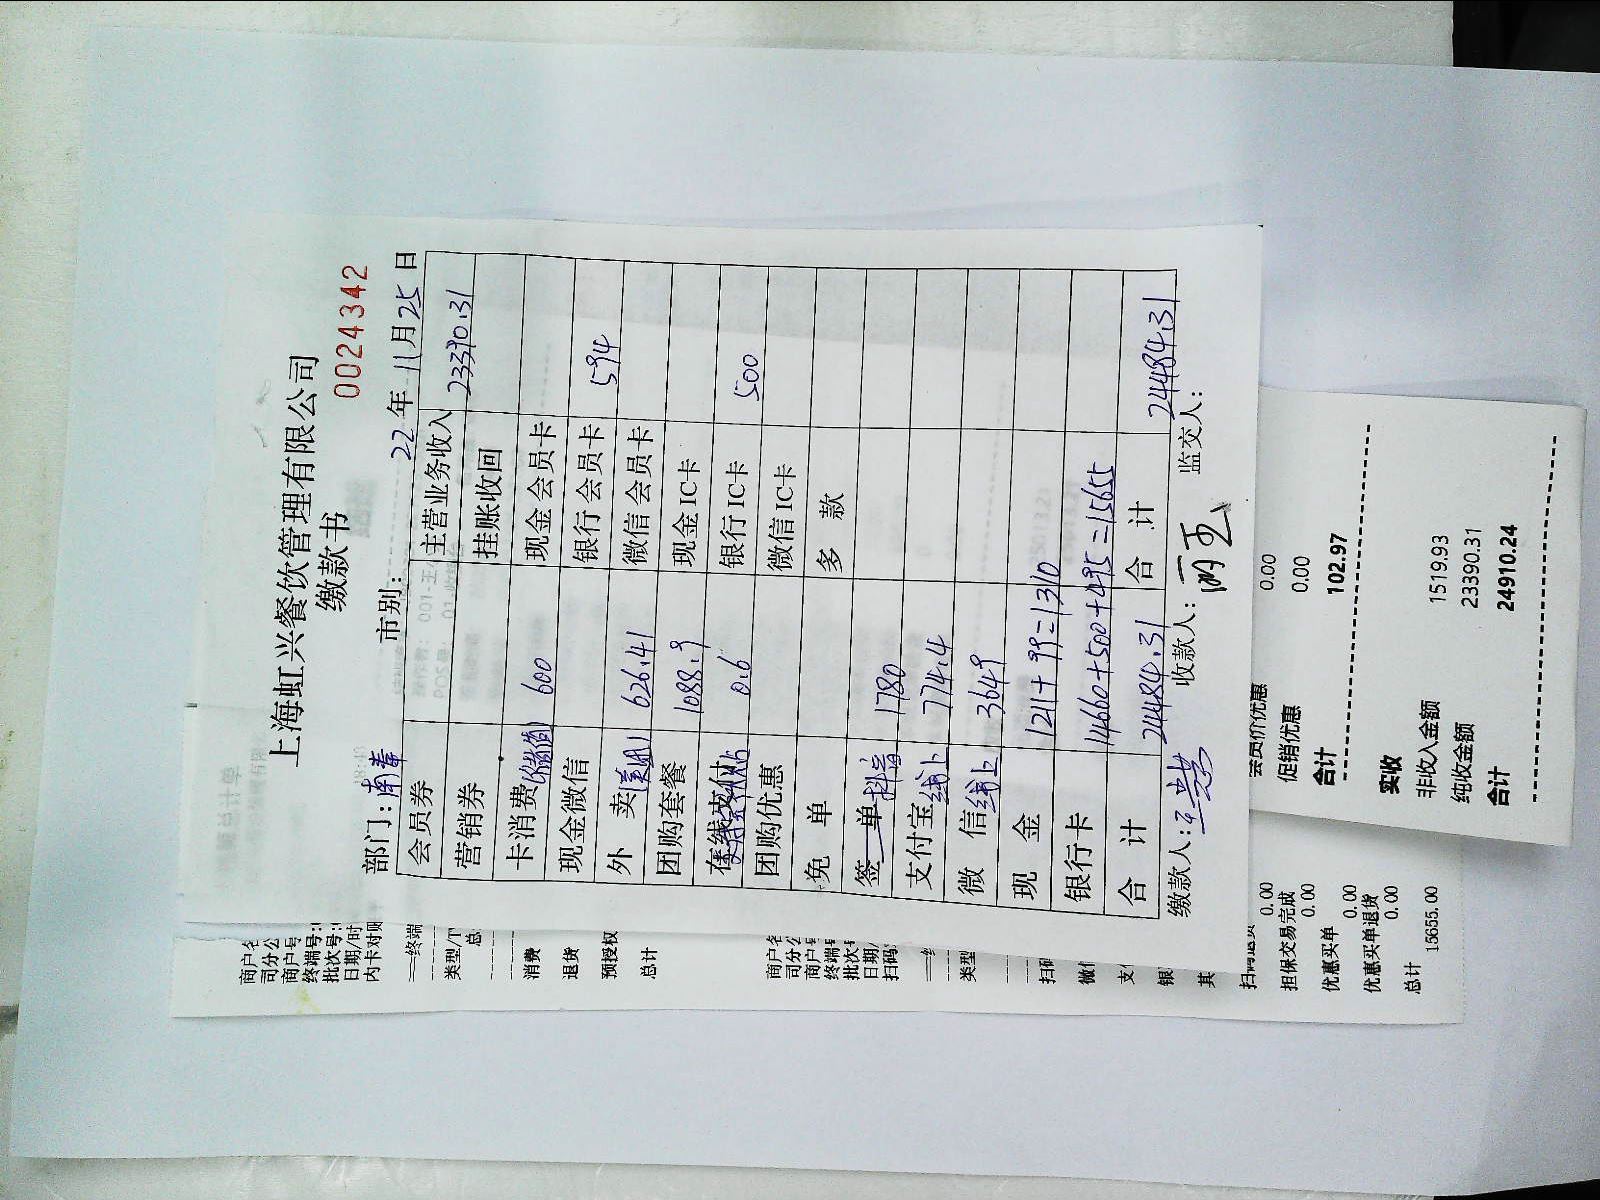 上海虹兴餐饮管理有限公司
缴款书
0024342
部门：南奉 市别： 22年11月25日
会员券 主营业务收入 23390.31
营销券 挂账收回
卡消费(储值) 600 现金会员卡
现金微信 银行会员卡 594
外 卖(美团) 626.41 微信会员卡
团购套餐 1088.9 现金IC卡
在线支付 0.6 银行IC卡 500
团购优惠 微信IC卡
免 单 多 款
签 单 抖音 1780
支付宝 线上 774.4
微 信 线上 3649
现 金 1211+99=1310
银行卡 14660+500+495=15655
合 计 24484.31 合 计 24484.31
缴款人： 收款人： 监交人：
会员价优惠 0.00
促销优惠 0.00
合计 102.97
实收
非收入金额 1519.93
纯收金额 23390.31
合计 24910.24
商户名
司分公
商户号
终端号:
批次号:
日期/时
内卡对账
类型/
总
消费
退货
预授权
总计
商户名
司分公
商户
终端
批次
日期/
扫码
类型
扫码
微信
支
银
其
扫码退货 0.00
担保交易完成
0.00
优惠买单
0.00
优惠买单退货
0.00
总计
15655.00